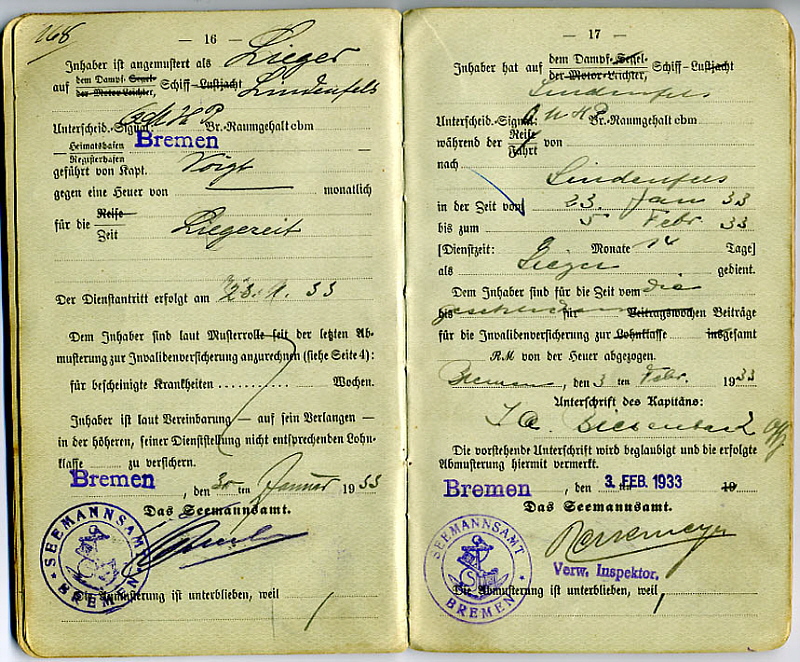 — 16 —
Inhaber ist angemustert als Lieger
auf dem Dampf- Segel- Schiff-Lustjacht Lindenfels
der Motor-Leichter,
Unterscheid.-Signal: Br.-Raumgehalt cbm
Heimatshafen Bremen
Registerhafen
geführt von Kapt. Voigt
gegen eine Heuer von monatlich
für die Reise
Zeit Liegezeit
Der Dienstantritt erfolgt am 23. 1. 33
Dem Inhaber sind laut Musterrolle seit der letzten Ab-
musterung zur Invalidenversicherung anzurechnen (siehe Seite 4):
für bescheinigte Krankheiten .......... Wochen.
Inhaber ist laut Vereinbarung — auf sein Verlangen —
in der höheren, seiner Dienststellung nicht entsprechenden Lohn-
klasse zu versichern.
Bremen, den 30 ten Januar 1933
Das Seemannsamt.
SEEMANNSAMT BREMEN
Die Abmusterung ist unterblieben, weil
— 17 —
Inhaber hat auf dem Dampf- Segel- Schiff-Lustjacht
der Motor-Leichter,
Lindenfels
Unterscheid.-Signal: Br.-Raumgehalt cbm
während der Reise von
Fahrt
nach Lindenfels
in der Zeit vom 23. Jan 33
bis zum 5 Febr 33
[Dienstzeit: Monate 14 Tage]
als Lieger gedient.
Dem Inhaber sind für die Zeit vom die
bis für Beitragswochen Beiträge
für die Invalidenversicherung zur Lohnklasse insgesamt
R.M von der Heuer abgezogen.
Bremen, den 3 ten Febr. 1933
Unterschrift des Kapitäns:
Die vorstehende Unterschrift wird beglaubigt und die erfolgte
Abmusterung hiermit vermerkt.
Bremen, den 3. FEB. 1933 19
Das Seemannsamt.
Verw. Inspektor.
SEEMANNSAMT BREMEN
Die Abmusterung ist unterblieben, weil